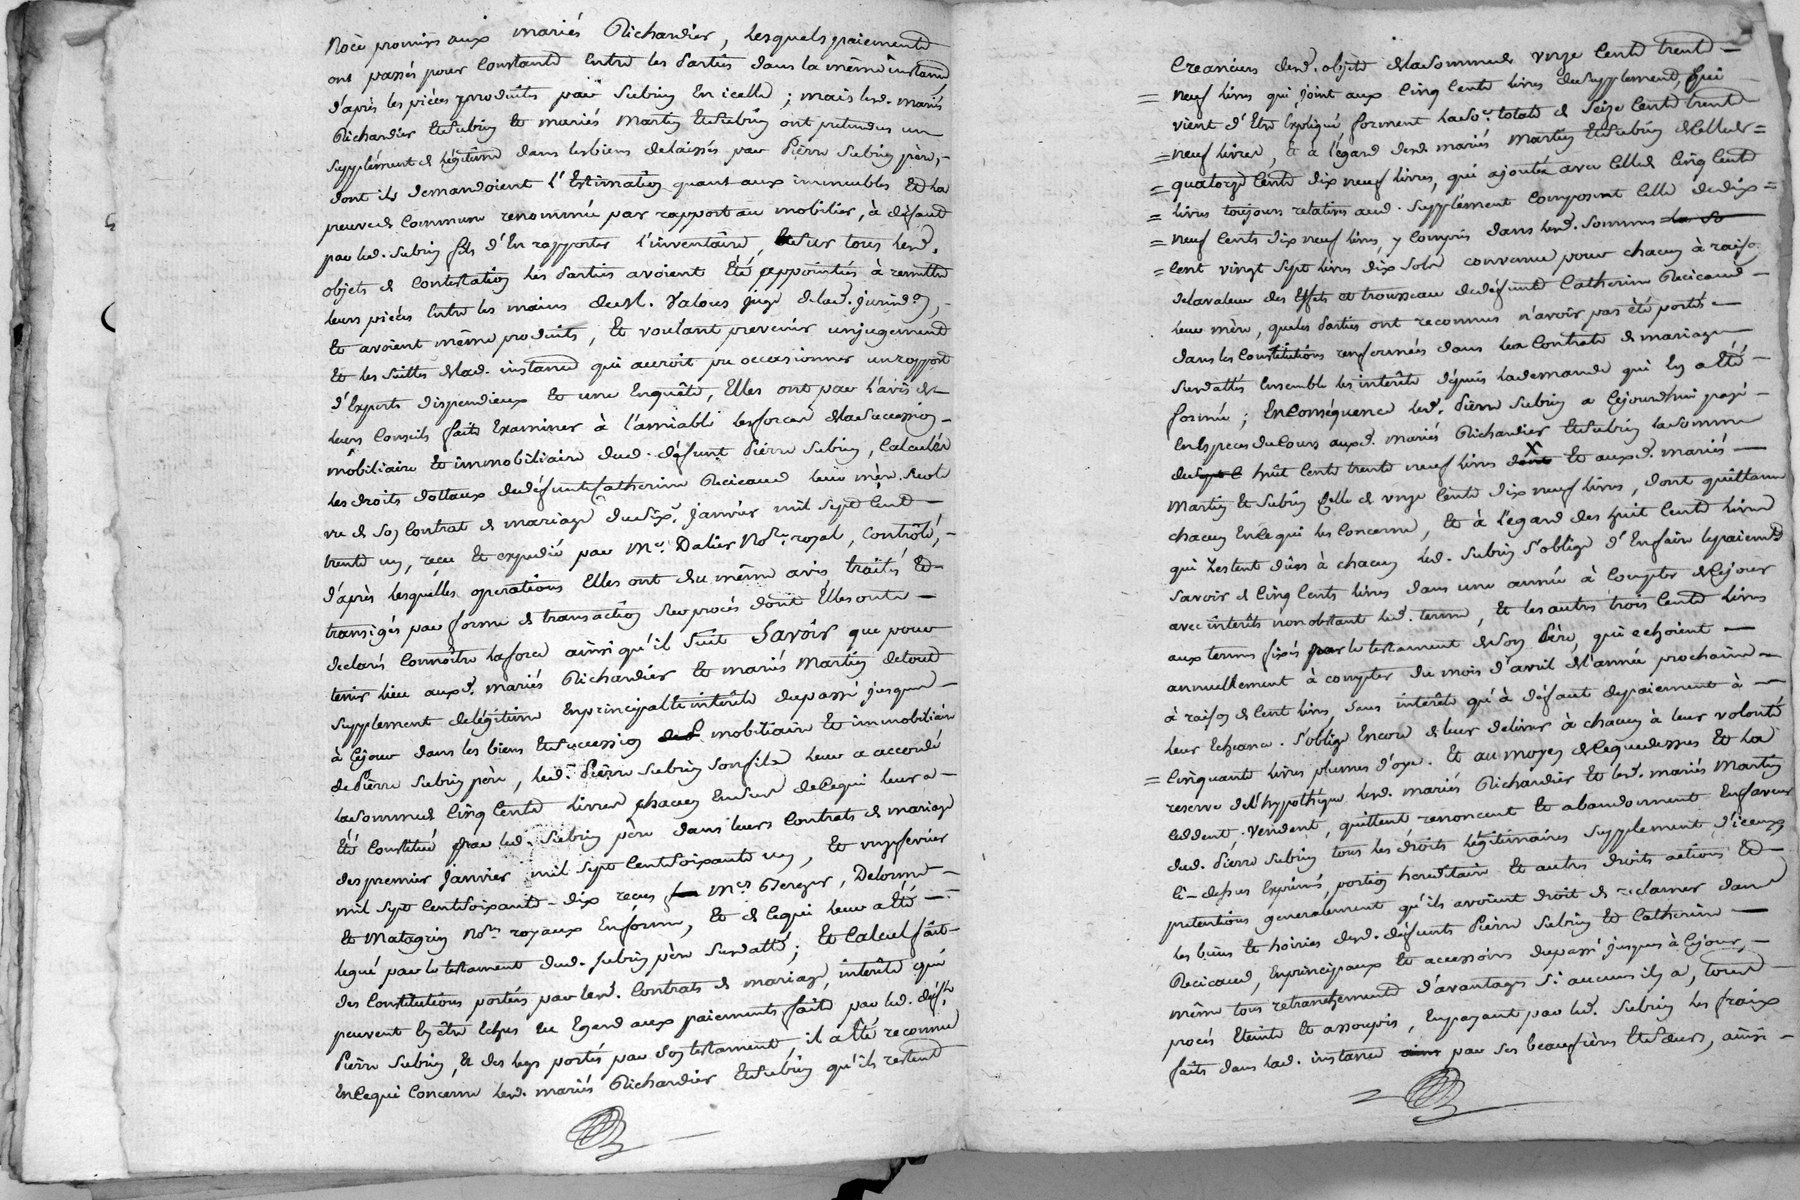 Noce promis aux mariés Richandier, lesquels paiements
ont passés pour constants entre les parties dans la même instance
d'après les pièces produites par Subrin en icelle ; mais lesd. mariés
Richandier et Subrin et mariés Martin et Subrin ont prétendus un
supplément de légitime dans les biens delaissés par Pierre Subrin père,
dont ils demandoient l'Estimation quant aux immeubles et la
preuve de commune renommée par rapport au mobilier, à défaut
par led. Subrin fils d'En rapporter l'inventaire, et sur tous lesd.
objets de contestation les Parties avoient Eté appointées à remettre
leurs pièces Entre les mains de M. Valous juge de lad. juridon,
Et avoient même produits, Et voulant prevenir un jugement
Et les suittes de lad. instance qui auroit pu occasionner un rapport
d'Experts dispendieux Et une Enquête, Elles ont par l'avis de
leurs Conseils fait Examiner à l'amiable les forces de la succession
mobiliaire Et immobiliaire dud. défunt Pierre Subrin, Calculer
les droits dottaux de défunte Catherine Recicaud leur mère sur le
vu de son Contrat de mariage du six janvier mil sept Cent
trente un, reçu Et expédié par Me. Dalier Nore. royal, Controlé,
d'après lesquelles operations Elles ont du même avis traités Et
transigés par forme de transaction sur procès dont Elles ont
declaré connoître la force ainsi qu'il suit Savoir que pour
tenir lieu auxd. mariés Richandier Et mariés Martin de tout
supplement de légitime En principal Et intérêts du passé jusques
à ce jour dans les biens Et succession mobiliaire Et immobiliaire
de Pierre Subrin père, led. Pierre Subrin son fils leur a accordé
la somme de Cinq Cents livres chacun En sus de ce qui leur a
Eté Constitué par led. Subrin père dans leurs Contrats de mariage
des premier janvier mil sept Cent soixante un, Et onze fevrier
mil sept Cent soixante-dix recus Mes. Berger, Delorme
Et Matagrin Nores. royaux En forme, Et de ce qui leur a Eté
legué par le testament dud. Subrin père susdatté ; Et Calcul fait
des Constitutions portées par lesd. Contrats de mariage, intérêts qui
peuvent En être Echus Eu Egard aux paiements faits par led. déft.
Pierre Subrin, Et des legs portés par son testament, il a Eté reconnu
En ce qui Concerne lesd. mariés Richandier Et Subrin qu'ils restent
Creanciers desd. objets de la somme de onze Cents trente
neuf livres qui, joint aux Cinq Cents livres du supplement, qui
vient d'Etre Expliqué, forment la soe. totale de seize Cents trente
neuf livres, Et à l'égard desd. mariés Martin Et Subrin de celle de
quatorze Cents dix neuf livres, qui ajoutée avec Celle de Cinq Cents
livres toujours relatives aud. supplément Composent Celle de dix
neuf Cents dix neuf livres, y compris dans lesd. sommes
Cent vingt sept livres dix sols convenue pour chacun à raison
de la valeur des Effets et trousseau de défunte Catherine Recicaud
leur mère, que les Parties ont reconnus n'avoir pas été portés
dans les Constitutions renfermées dans les Contrats de mariage
susdattés Ensemble les intérêts depuis la demande qui En a Eté
formée ; En Conséquence led. Pierre Subrin a cejourd'hui payé
En Espèces de Cours auxd. mariés Richandier Et Subrin la somme
de huit Cents trente neuf livres Et auxd. mariés
Martin Et Subrin Celle de onze Cents dix neuf livres, dont quittance
chacun En ce qui les Concerne, Et à l'égard des huit Cents livres
qui restent dües à chacun led. Subrin s'oblige d'En faire le paiement
Savoir de Cinq Cents livres dans une année à Compter de ce jour
avec intérêts nonobstant led. terme, Et les autres trois Cents livres
aux termes fixés par le testament de son Père, qui echoient
annuellement à compter du mois d'avril de l'année prochaine
à raison de Cent livres, sans intérêts qu'à défaut de paiement à
leur Echeance. S'oblige Encore de leur delivrer à chacun à leur volonté
Cinquante livres plumes d'oye. Et au moyen de ce que dessus Et la
reserve de l'hypothèque lesd. mariés Richandier Et lesd. mariés Martin
Cèdent, vendent, quittent renoncent Et abandonnent En faveur
dud. Pierre Subrin tous les droits légitimaires supplement d'iceux
Ci-dessus Exprimés, portion hereditaire Et autres droits actions Et
pretentions generalement qu'ils avoient droit de reclamer dans
les biens Et hoiries desd. défunts Pierre Subrin Et Catherine
Recicaud, En principaux Et accessoires du passé jusques à ce jour,
même tous retranchements d'avantages Si aucuns il y a, tous
procès Eteints Et assoupis, En payant par led. Subrin les fraix
faits dans lad. instance par ses beaux frères Et sœurs, ainsi